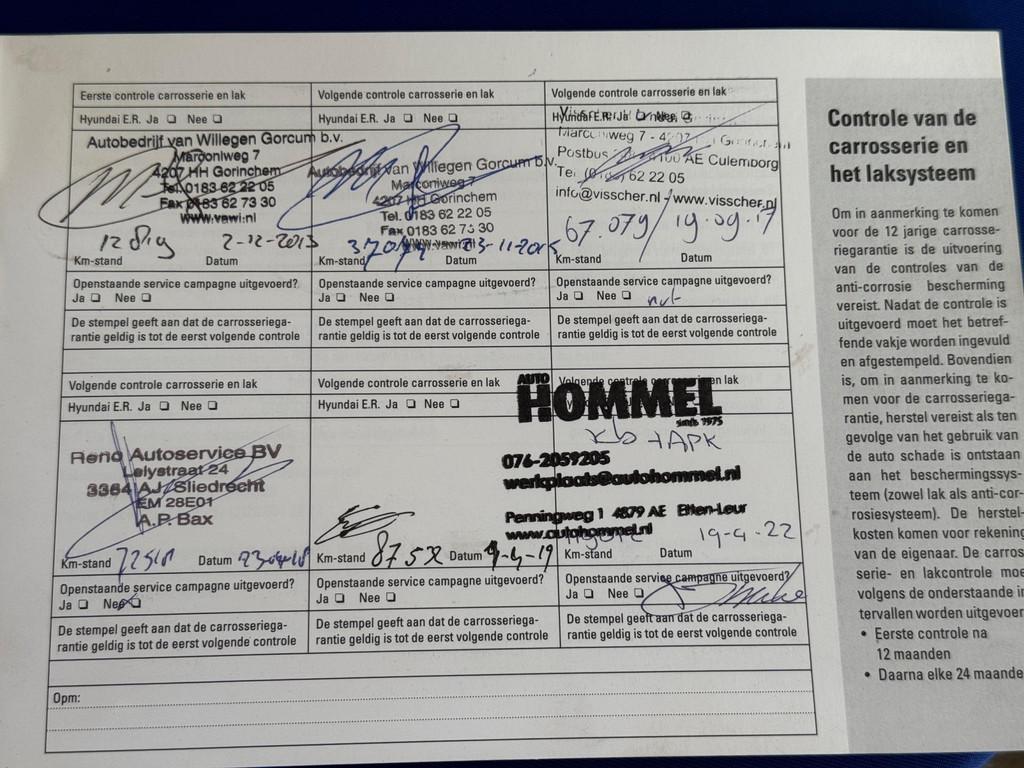 Eerste controle carrosserie en lak
Hyundai E.R. Ja Nee
Autobedrijf van Willegen Gorcum b.v.
Marconiweg 7
4207 HH Gorinchem
Tel. 0183 62 22 05
Fax 0183 62 73 30
www.vawi.nl
2-12-2013
Km-stand Datum
Openstaande service campagne uitgevoerd?
Ja Nee
De stempel geeft aan dat de carrosseriega-
rantie geldig is tot de eerst volgende controle
Volgende controle carrosserie en lak
Hyundai E.R. Ja Nee
Autobedrijf van Willegen Gorcum b.v.
Marconiweg 7
4207 HH Gorinchem
Tel. 0183 62 22 05
Fax 0183 62 73 30
www.vawi.nl
23-11-2015
Km-stand Datum
Openstaande service campagne uitgevoerd?
Ja Nee
De stempel geeft aan dat de carrosseriega-
rantie geldig is tot de eerst volgende controle
Volgende controle carrosserie en lak
Hyundai E.R. Ja Nee
Marconiweg 7
Postbus AE Culemborg
62 22 05
info@visscher.nl - www.visscher.nl
67.079 / 19.09.17
Km-stand Datum
Openstaande service campagne uitgevoerd?
Ja Nee
De stempel geeft aan dat de carrosseriega-
rantie geldig is tot de eerst volgende controle
Volgende controle carrosserie en lak
Hyundai E.R. Ja Nee
Reno Autoservice BV
Lelystraat 24
3364 AJ Sliedrecht
EM 28E01
A.P. Bax
Km-stand Datum
Openstaande service campagne uitgevoerd?
Ja Nee
De stempel geeft aan dat de carrosseriega-
rantie geldig is tot de eerst volgende controle
Volgende controle carrosserie en lak
Hyundai E.R. Ja Nee
Km-stand Datum 9-4-19
Openstaande service campagne uitgevoerd?
Ja Nee
De stempel geeft aan dat de carrosseriega-
rantie geldig is tot de eerst volgende controle
Volgende controle carrosserie en lak
AUTO
HOMMEL
sinds 1975
+APK
076-2059205
werkplaats@autohommel.nl
Penningweg 1 4879 AE Etten-Leur
www.autohommel.nl
19-4-22
Km-stand Datum
Openstaande service campagne uitgevoerd?
Ja Nee
De stempel geeft aan dat de carrosseriega-
rantie geldig is tot de eerst volgende controle
Opm:
Controle van de
carrosserie en
het laksysteem
Om in aanmerking te komen
voor de 12 jarige carrosse-
riegarantie is de uitvoering
van de controles van de
anti-corrosie bescherming
vereist. Nadat de controle is
uitgevoerd moet het betref-
fende vakje worden ingevuld
en afgestempeld. Bovendien
is, om in aanmerking te ko-
men voor de carrosseriega-
rantie, herstel vereist als ten
gevolge van het gebruik van
de auto schade is ontstaan
aan het beschermingssys-
teem (zowel lak als anti-cor-
rosiesysteem). De herstel-
kosten komen voor rekening
van de eigenaar. De carros
serie- en lakcontrole moe
volgens de onderstaande in
tervallen worden uitgevoer
• Eerste controle na
12 maanden
• Daarna elke 24 maande